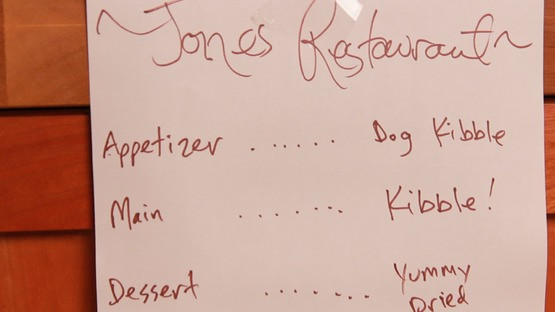 ~Jones Restaurant~
Appetizer ...... Dog Kibble
Main ...... Kibble!
Dessert ....... Yummy
Dried